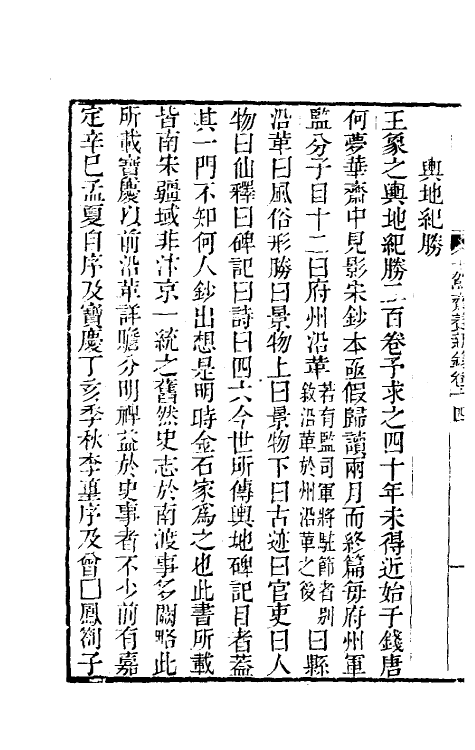 十駕齋養新錄卷十四
輿地紀勝
王象之輿地紀勝二百卷予求之四十年未得近始于錢唐
何夢華齋中見影宋鈔本亟假歸讀兩月而終篇每府州軍
監分子目十二曰府州沿革若有監司軍將駐節者別敘沿革於州沿革之後曰縣
沿革曰風俗形勝曰景物上曰景物下曰古迹曰官吏曰人
物曰仙釋曰碑記曰詩曰四六今世所傳輿地碑記目者蓋
其一門不知何人鈔出想是明時金石家爲之也此書所載
皆南宋疆域非汴京一統之舊然史志於南渡事多闕略此
所載寶慶以前沿革詳贍分明裨益於史事者不少前有嘉
定辛巳孟夏自序及寶慶丁亥季秋李𡌴序及曾□鳳劄子